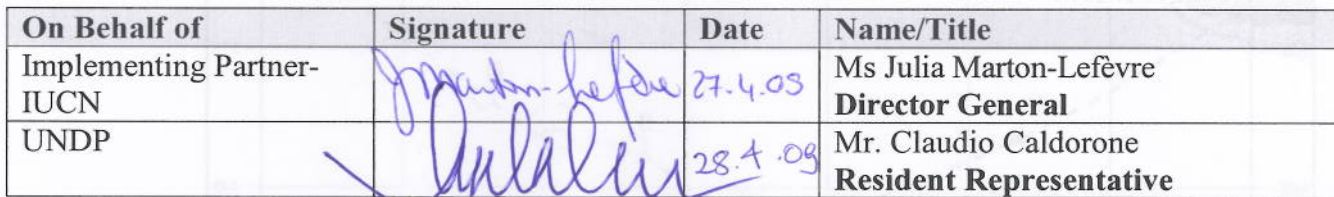 On Behalf of Signature Date Name/Title
Implementing Partner- Ms Julia Marton-Lefèvre
IUCN JMarton-Lefèvre 27.4.09 Director General
UNDP 28.4.09 Mr. Claudio Caldorone
Resident Representative